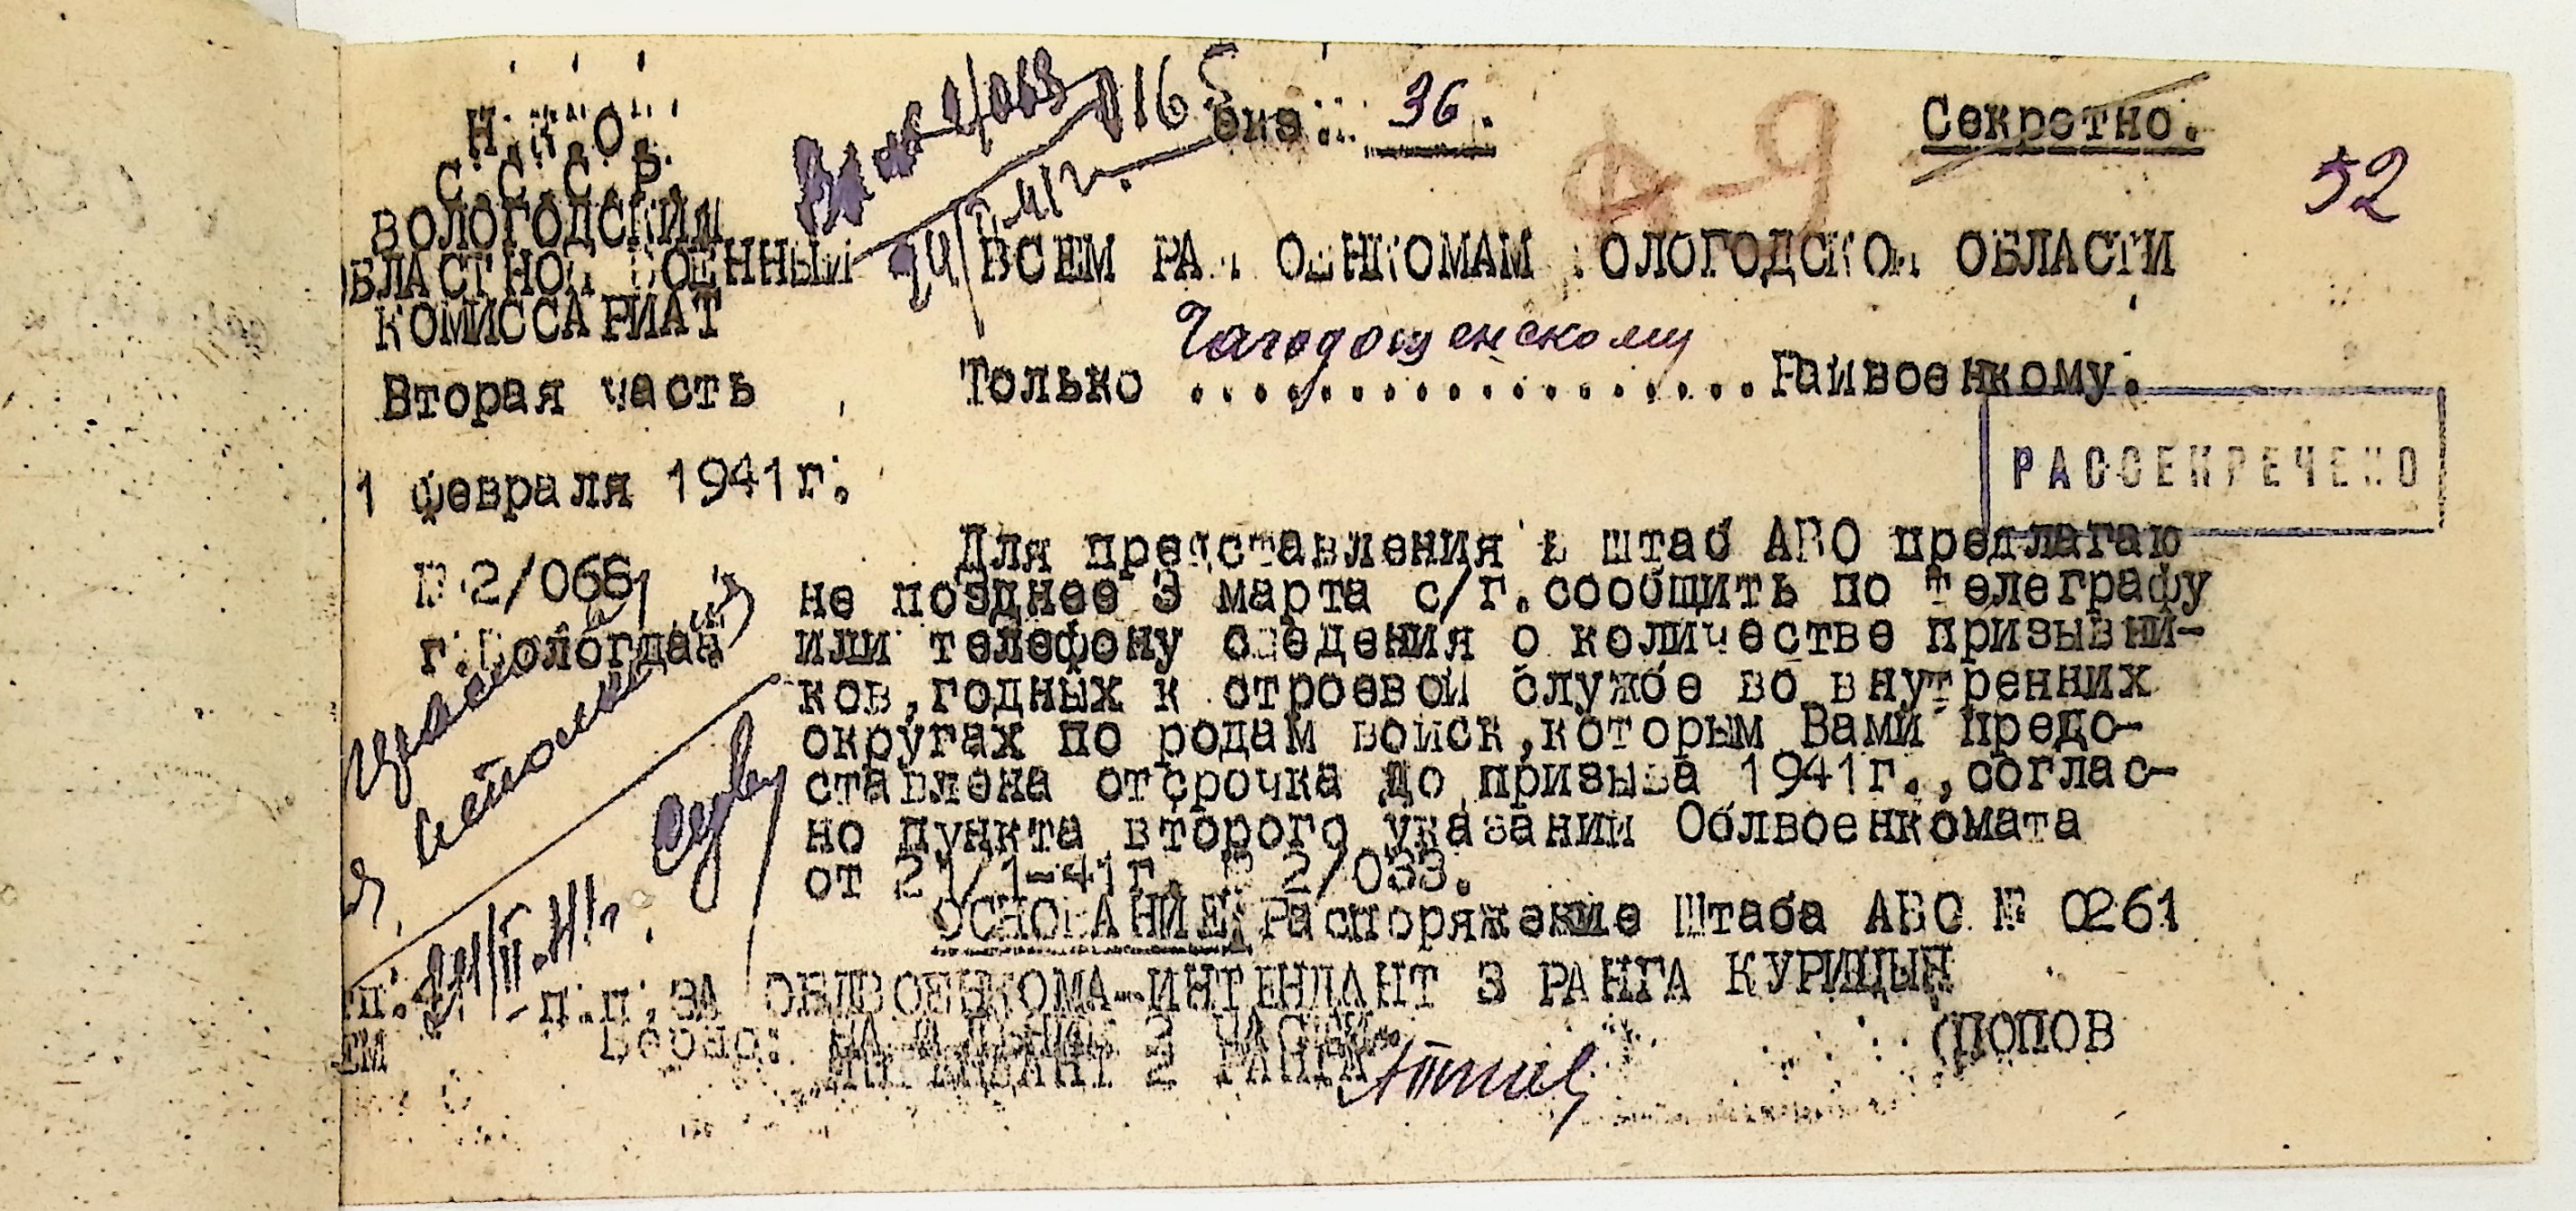 Н.К.О.
С.С.С.Р.
ВОЛОГОДСКИЙ
ОБЛАСТНОЙ ВОЕННЫЙ
КОМИССАРИАТ
Вторая часть
1 февраля 1941г.
2/066
г.Вологда
экз: 36.
Секретно.
52
ВСЕМ РАЙВОЕНКОМАМ ВОЛОГОДСКОЙ ОБЛАСТИ
Чагодощенскому
Только ..................Райвоенкому.
РАССЕКРЕЧЕНО
Для представления в штаб АВО предлагаю
не позднее 3 марта с/г.сообщить по телеграфу
или телефону сведения о количестве призывни-
ков,годных к строевой службе во внутренних
округах по родам войск,которым Вами предо-
ставлена отсрочка до призыва 1941г.,соглас-
но пункта второго указаний Облвоенкомата
от 21/1-41г. № 2/033.
ОСНОВАНИЕ: Распоряжение Штаба АВО № 0261
п.п. ЗА ОБЛВОЕНКОМА-ИНТЕНДАНТ 3 РАНГА КУРИЦЫН
Верно: НАЧАЛЬНИК 2 ЧАСТИ
ИНТЕНДАНТ 2 РАНГА
(ПОПОВ